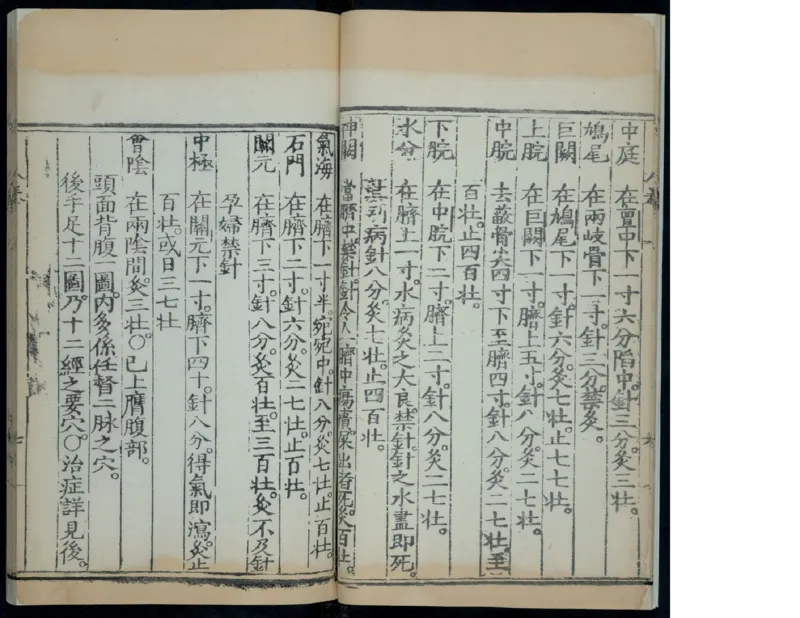 中庭 在亶中下一寸六分陷中。針三分。灸三壯。
鳩尾 在兩岐骨下一寸。針三分。禁灸。
巨闕 在鳩尾下一寸。針六分。灸七壯。止七七壯。
上脘 在巨闕下一寸。臍上五寸。針八分。灸二七壯。
中脘 去蔽骨尖四寸下至臍四寸。針八分灸二七壯。至
百壯。止四百壯。
下脘 在中脘下二寸。臍上二寸。針八分。灸二七壯。
水分 在臍上一寸。水病灸之大良。禁針。針之水盡即死。
病針八分。灸七壯。止四百壯。
神闕 當臍中。禁針。針令人臍中瘍潰屎出者死。灸百壯。
氣海 在臍下一寸半。宛宛中。針八分。灸七壯。止百壯。
石門 在臍下二寸。針六分。灸二七壯。止百壯。
關元 在臍下三寸。針八分。灸百壯。至三百壯。灸不及針
孕婦禁針
中極 在關元下一寸。臍下四寸。針八分。得氣即瀉。灸止
百壯。或日三七壯
會陰 在兩陰間。灸三壯。〇已上膺腹部。
頭面背腹一圖。內多係任督二脉之穴。
後手足十二圖。乃十二經之要穴。〇治症詳見後。